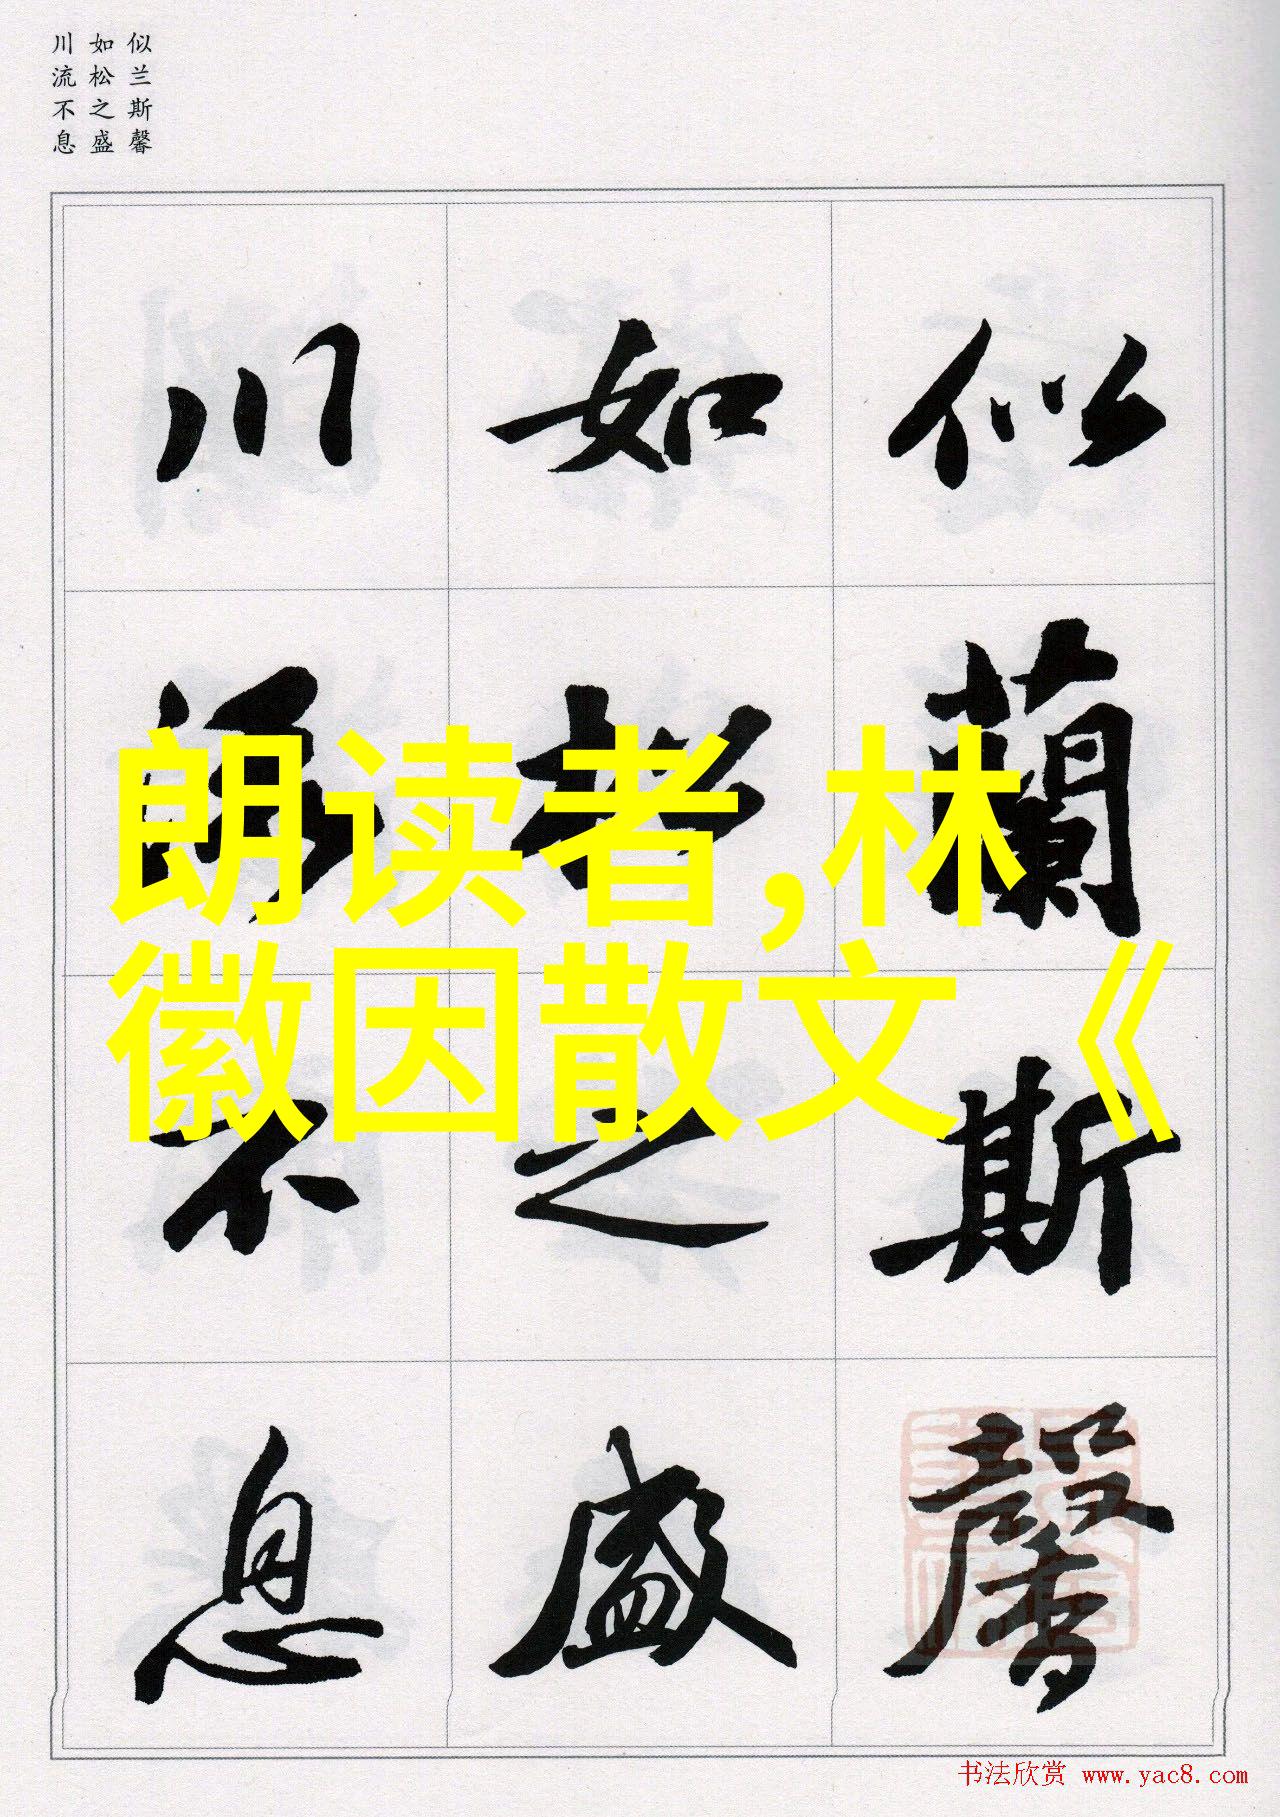 似兰斯馨
如松之盛
川流不息
似蘭斯馨
如松之盛
川流不息
朗读者,林
徽因散文《
书法欣赏 www.yac8.com